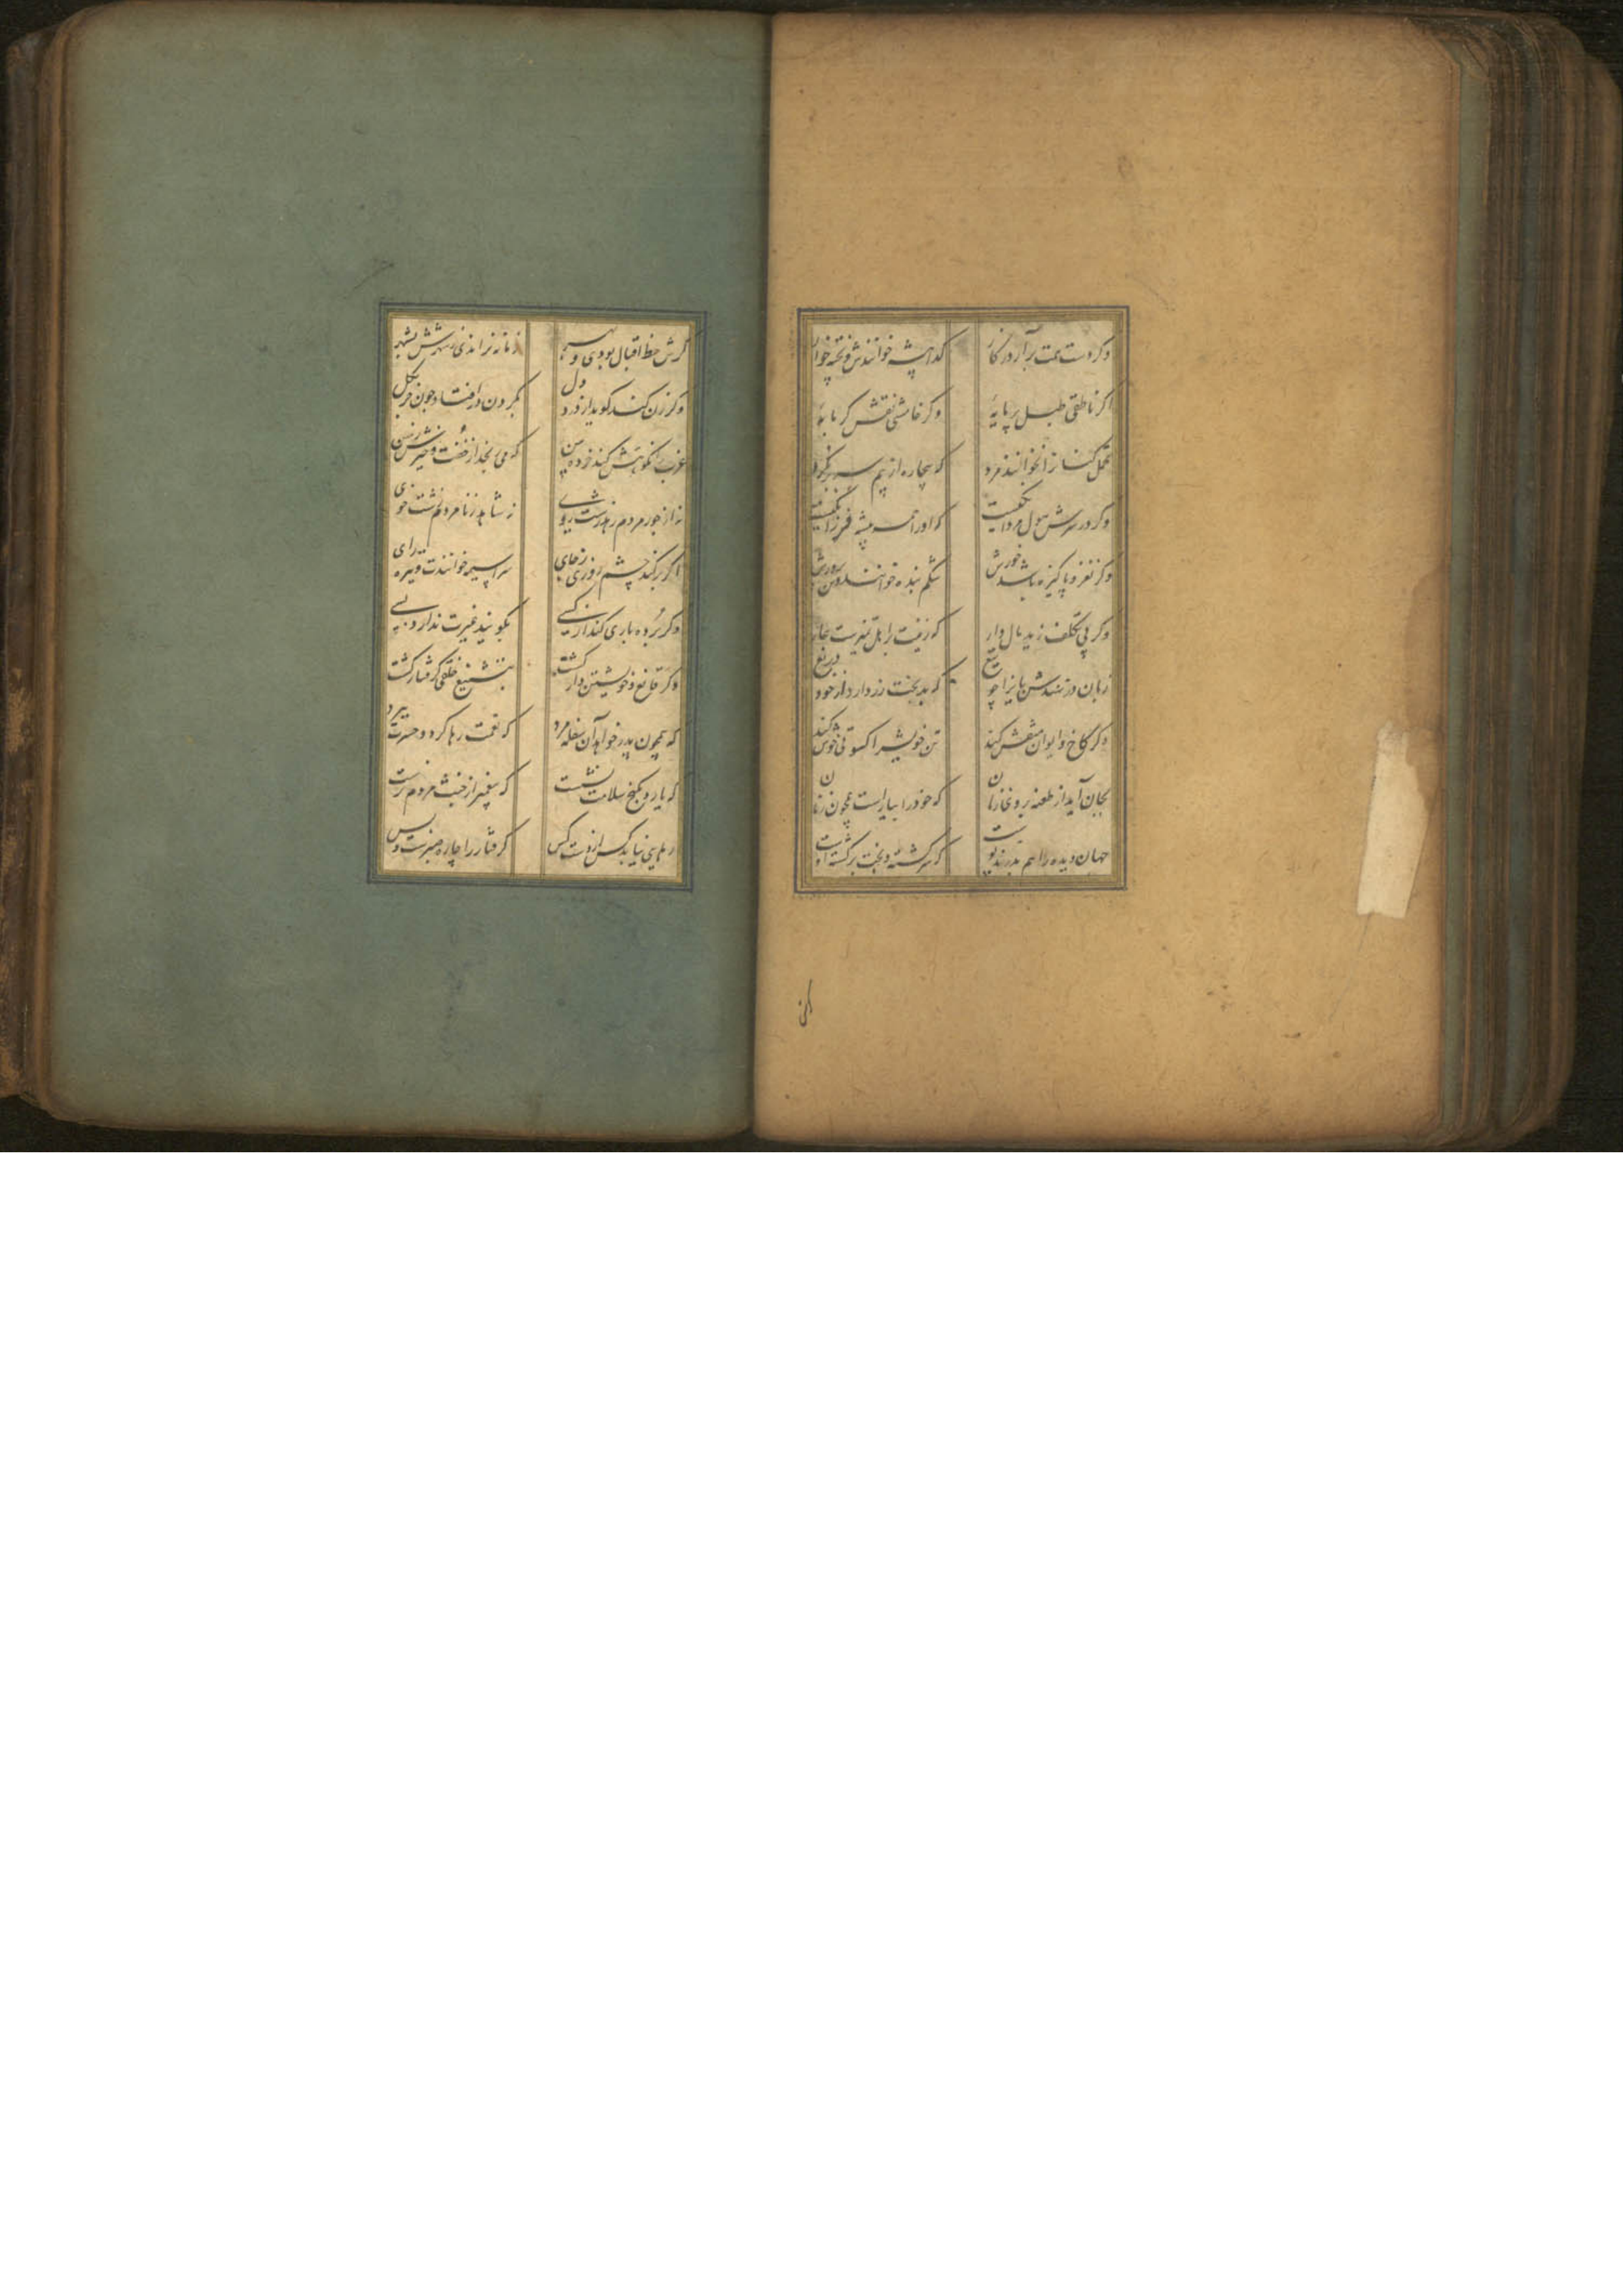 وکر دست همت بر آرد ز کار کدا پیشه خوانندش و پخته خوار
اکر ناطقی طبل بر پایهٔ وکر خامشی نقش کرمابهٔ
تحمل کنانرا نخوانند مرد که بیچاره از بیم سر بر نکرد
وکر در سرش هول مردانکیست کو اورا همه پیشه فرزانکیست
وکر نغز و پاکیزه باشد خورش شکم بنده خوانند و تن پرورش
وکر بی تکلف زید مال دار که زینت بر اهل تمیزست عار
زبان در نهندش بایزا چو تیغ که بدبخت زر دارد از خود دریغ
وکر کاخ و ایوان منقش کند تن خویش را کسوتی خوش کند
بجان آید از طعنه برو که خود را بیاراست همچون زنان
جهان دیده را هم بدرند پوست که سرکشتهٔ و بخت برکشته اوست
کرش
کرش حظ و اقبال بودی و بهر زمانه نراندی ز شهرش بشهر
وکر زن کند کوید از درد دل بکردن در افتاد چون خر بکل
عزب را نکوهش کند خرده بین که می رنجد از خفت و خیزش زمین
نه از جور مردم رهد زشت روی نه شاهد ز نامردم زشت خوی
اکر بر کند خشم روزی ز جای سراسیمه خوانندت و تیره رای
وکر بردباری کند از کسی بکویند غیرت ندارد بسی
وکر قانع و خویشتن دار کشت بتشنیع خلقی کرفتار کشت
که همچون پدر خواهد آن سفله مرد که نعمت رها کرد و حسرت ببرد
که یارد بکنج سلامت نشست که پیغمبر از خبث مردم نرست
رهایی نیابد کس از دست کس کرفتار را چاره صبرست و بس